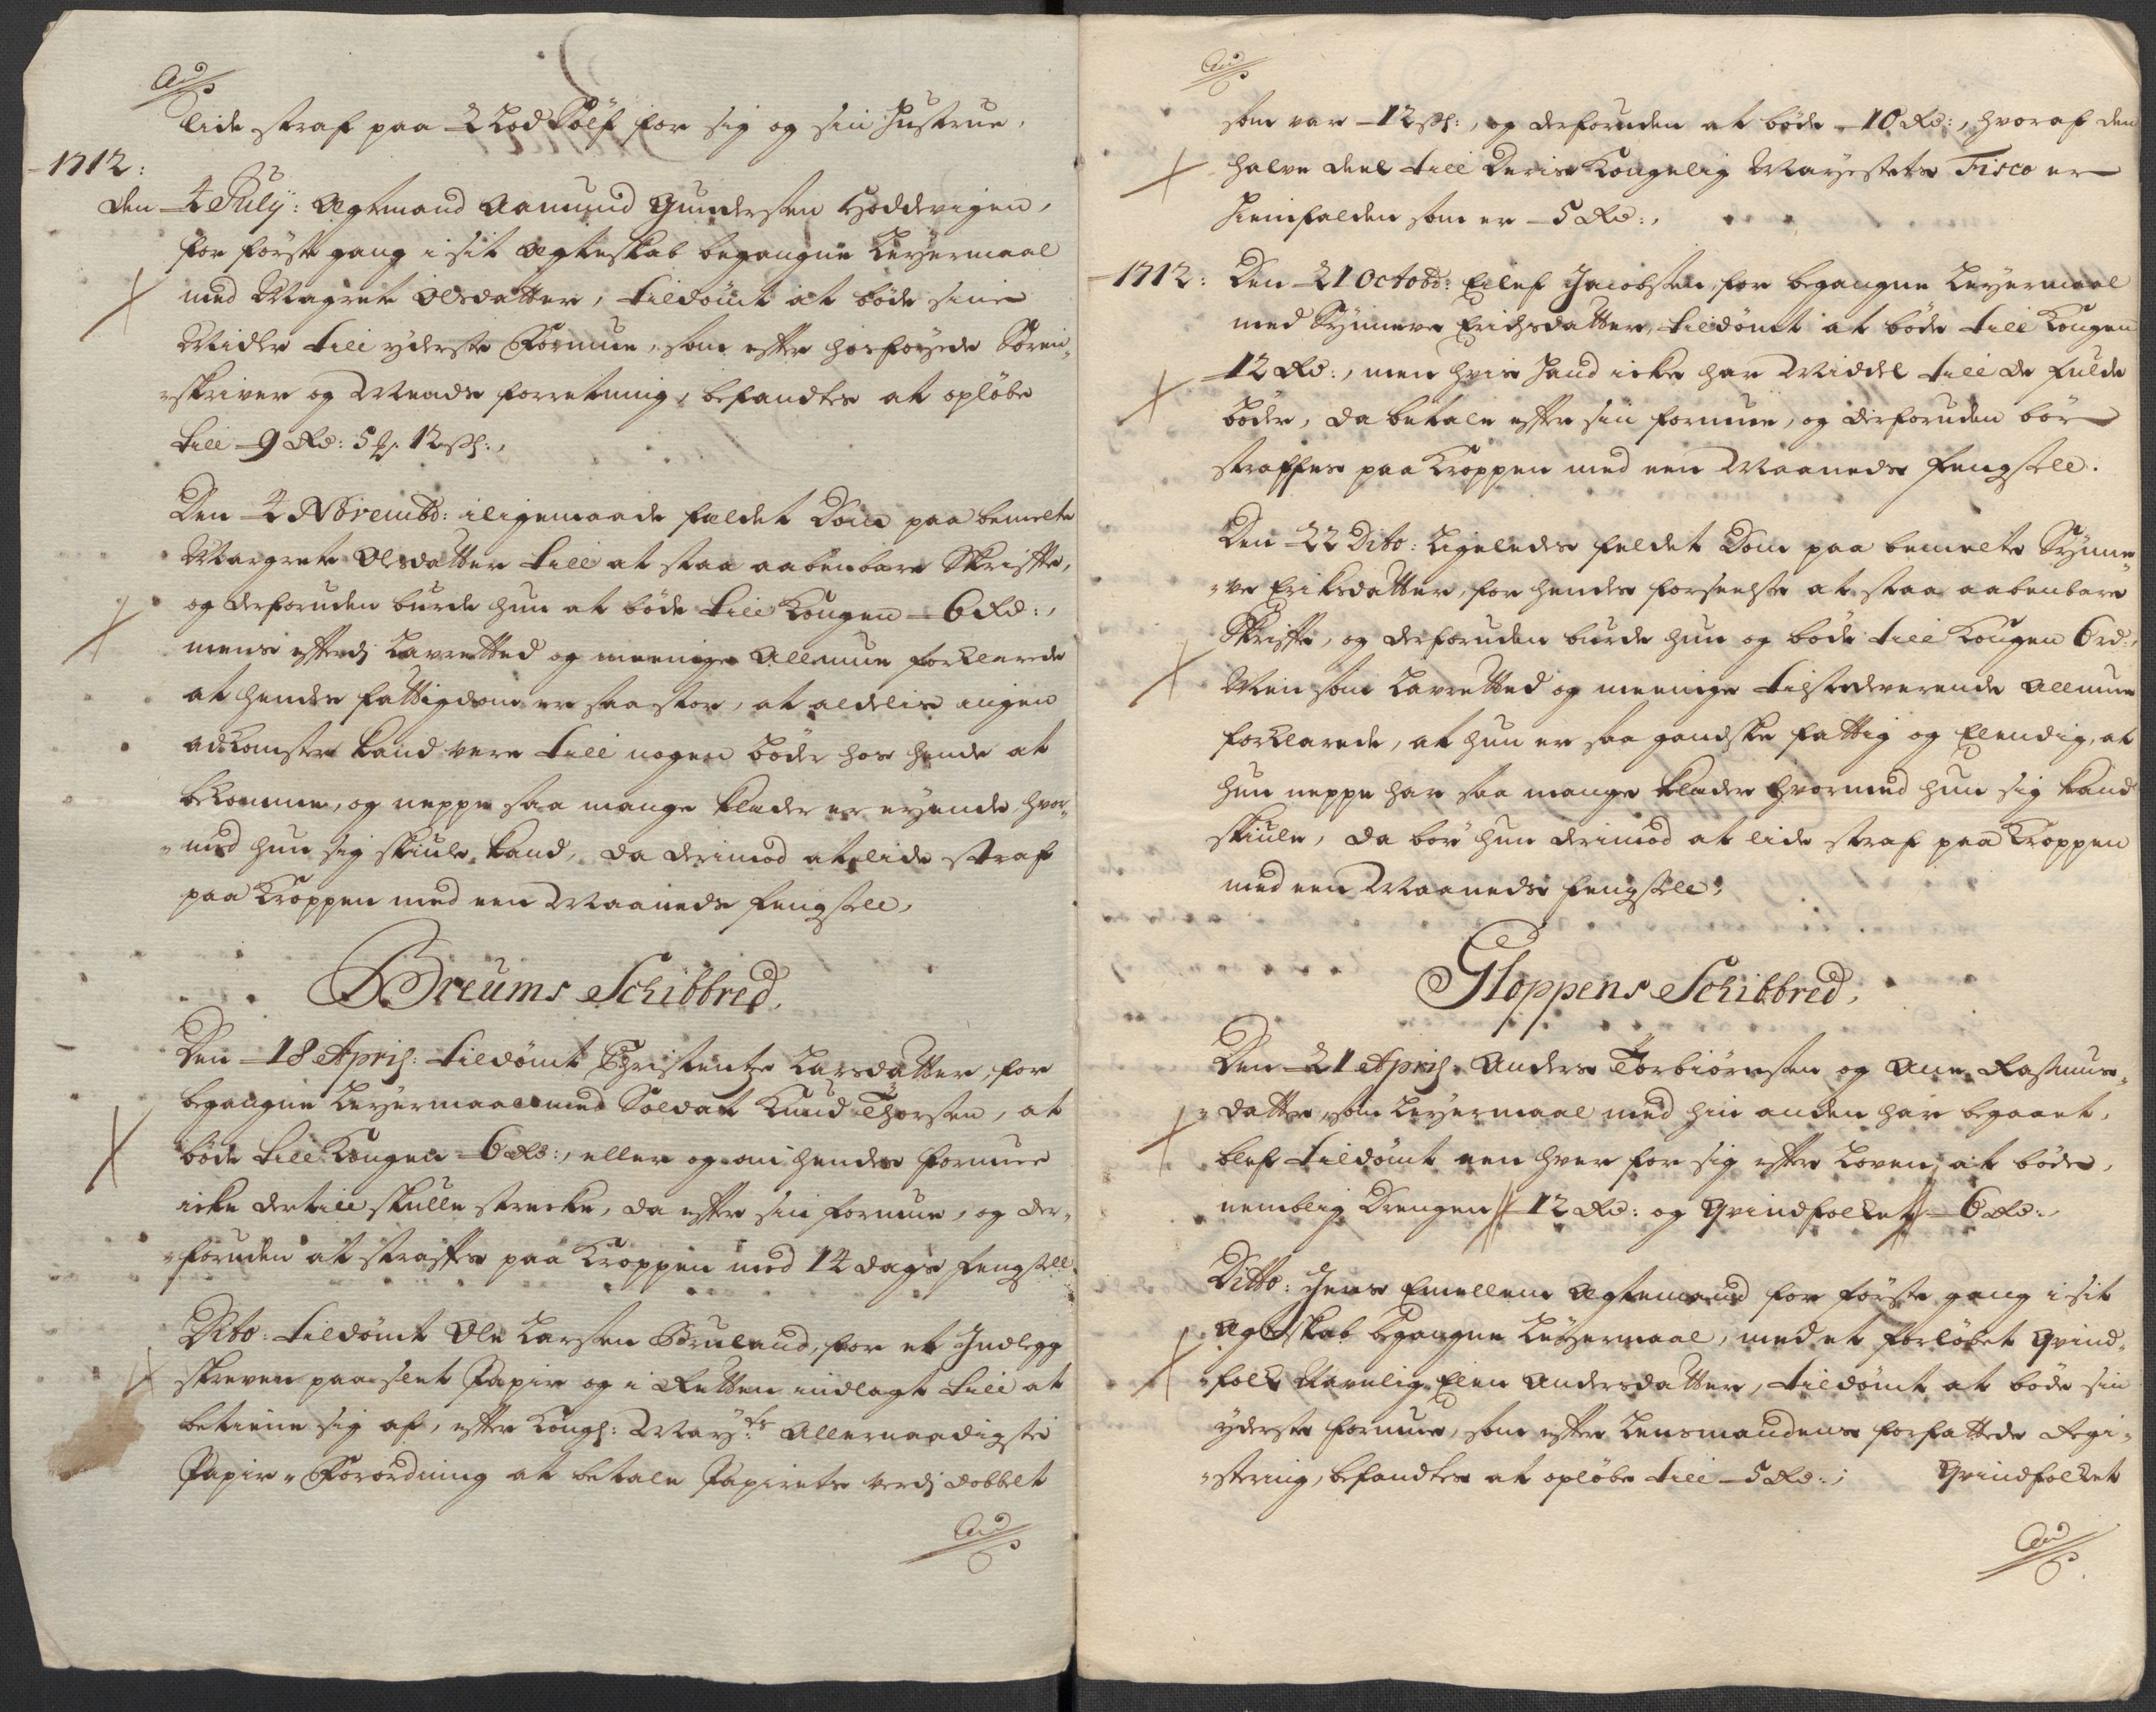 lide straf paa 2 Lod Sölf for sig og sin Hustrue,
1712:
den 4 July: Ægtmand Aamund Gundersen Hoddevigen,
for förste gang i sit Ægteskab begangne Leyermaal
med Magrete Olsdatter, tildömt at böde sine
Midler till yderste Formue, som efter hosföyede Sören„
„skriver og Mends forretning, befandtes at oplöbe
till 9 Rd: 5 ß 12 sh:,
Den 4 Novembr: iligemaade faldet Dom paa bemelte
Margrete Olsdatter till at staa aabenbare Skrifte,
og desforuden burde hun at böde till Kongen 6 Rd:,
mens efterdj Lavretted og meenige Allmue forklarede
at hendes fattigdom er saa stor, at aldelis ingen
adkomster kand være till nogen böder hos hende at
bekomme, og neppe saa mange klæder er eyende, hvor„
„med hun sig skiule kand, da derimod at lide straf
paa Kroppen med een Maaneds fengsell,
Breums Schibbred,
Den 18 Aprilj: tildömt Christentze Larsdatter, for
begangne Leyermaal med Soldat Knud Thorsen, at
böde till Kongen 6 Rd:, eller og om hendes formue
icke dertill skulle strecke, da efter sin formue, og der„
„foruden at straffes paa Kroppen med 14 dags fengsell
Dito: tildömt Ole Larsen Bruland, for et Indlegg
skreven paa slet Papir og i Retten indlagt till at
betiene sig af, efter Kongl: May:ts Allernaadigste
Papir„Forordning at betale Papirets verdj dobbelt
som var 12 sh:, og desforuden at böde 10 Rd:, hvoraf den
halve deel till Deris Kongelig Mayestets Fisco er
Hiemfalden som er 5 Rd:,
1712: Den 21 Octobr: Eilef Jacobsen, for begangne Leyermaal
med Synneve Erichsdatter, tildömt at böde till Kongen
12 Rd:, men hvis hand icke har Middel till de fulde
böder, da betale efter sin formue, og desforuden bör
straffes paa Kroppen med een Maaneds fengsell.
Den 22 Dito: Ligeledes feldet Dom paa bemelte Synne„
„ve Eriksdatter, for hendes forseelse at staa aabenbare
Skrifte, og desforuden burde hun og bode till Kongen 6 rd:,
Men som Lavretted og meenige tilstedeværende Allmue
forklarede, at hun er saa gandske fattig og Elendig, at
hun neppe har saa mange klæder hvormed hun sig kand
skiule, da bör hun derimod at lide straf paa Kroppen
med een Maaneds fengsell,
Gloppens Schibbred,
Den 21 Aprilj: Anders Torbiörnsen og Ane Rasmus„
„datter, som Leyermaal med hin anden har begaaet,
blef tildömt een hver for sig efter Loven at böde,
nemblig Drengen 12 Rd: og Qvindfolket 6 Rd:,
Ditto: Jens Emellem Ægtemand for förste gang i sit
Ægteskab begangne Leyermaal, med et forlöbet Qvind„
„folk Navnlig Elen Andersdatter, tildömt at böde sin
yderste formue, som efter Lensmandens forfattede Regi„
„stering, befandtes at oplöbe till 5 Rd:; Qvindfolket